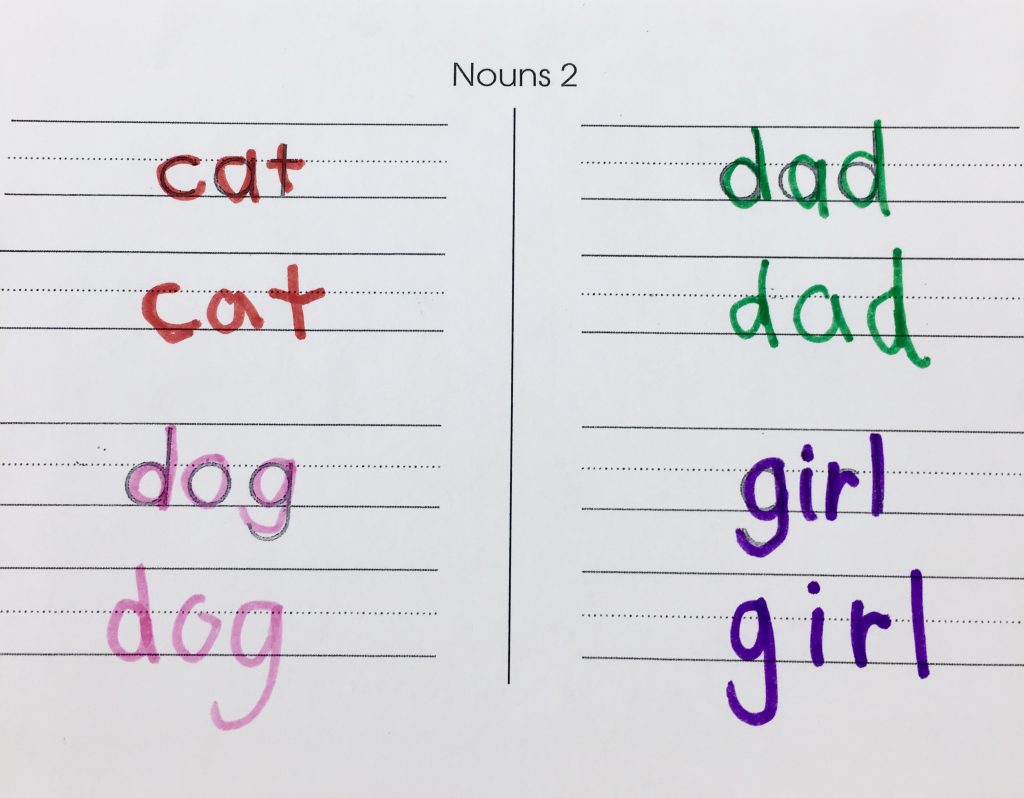 Nouns 2
cat
cat
dog
dog
dad
dad
girl
girl